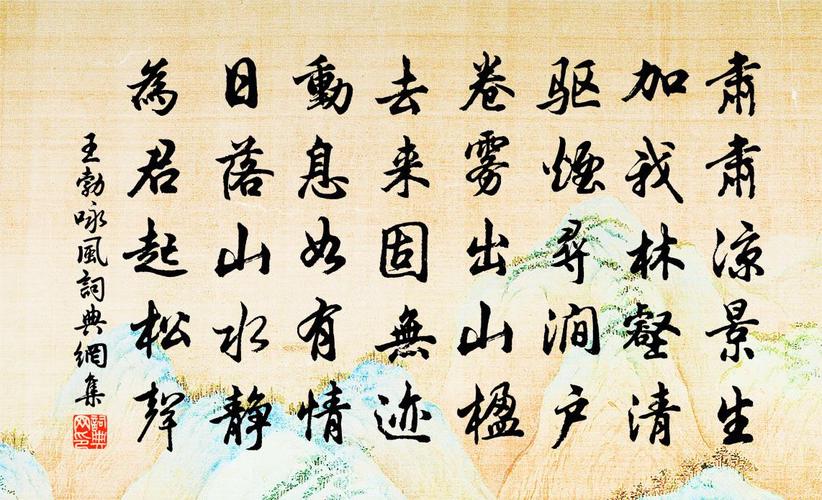 肃肃凉景生
加我林壑清
驱烟寻涧户
卷雾出山楹
去来固無迹
動息如有情
日落山水静
為君起松聲
王勃咏風詞典網集
詞典網印